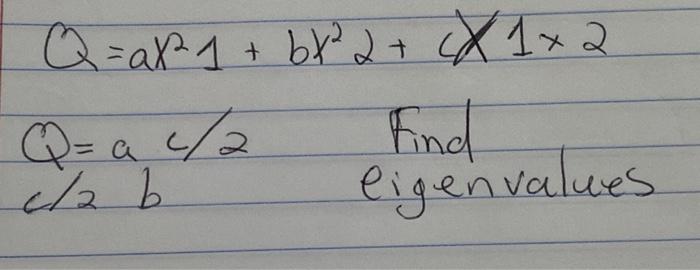 Q = ax² 1 + bx² 2 + cX 1 x 2
Q = a c/2 Find
c/2 b eigenvalues